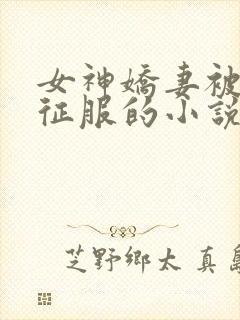 女神嬌妻被
征服的小說
芝野鄉太 真島